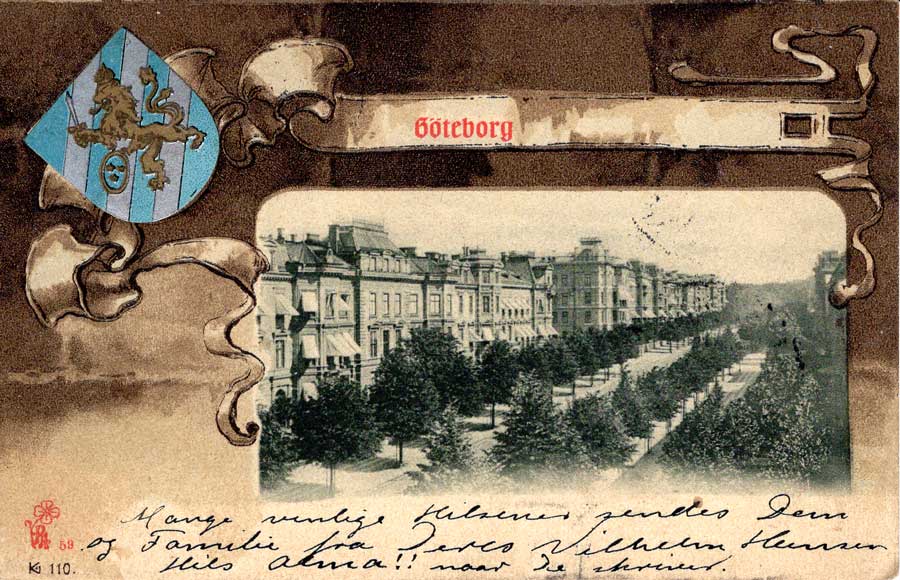 Göteborg
Mange venlige Hilsener sendes Dem
og Familie fra Deres Vilhelm Hansen
Hils Alma!! naar De skriver.
59
K 110.